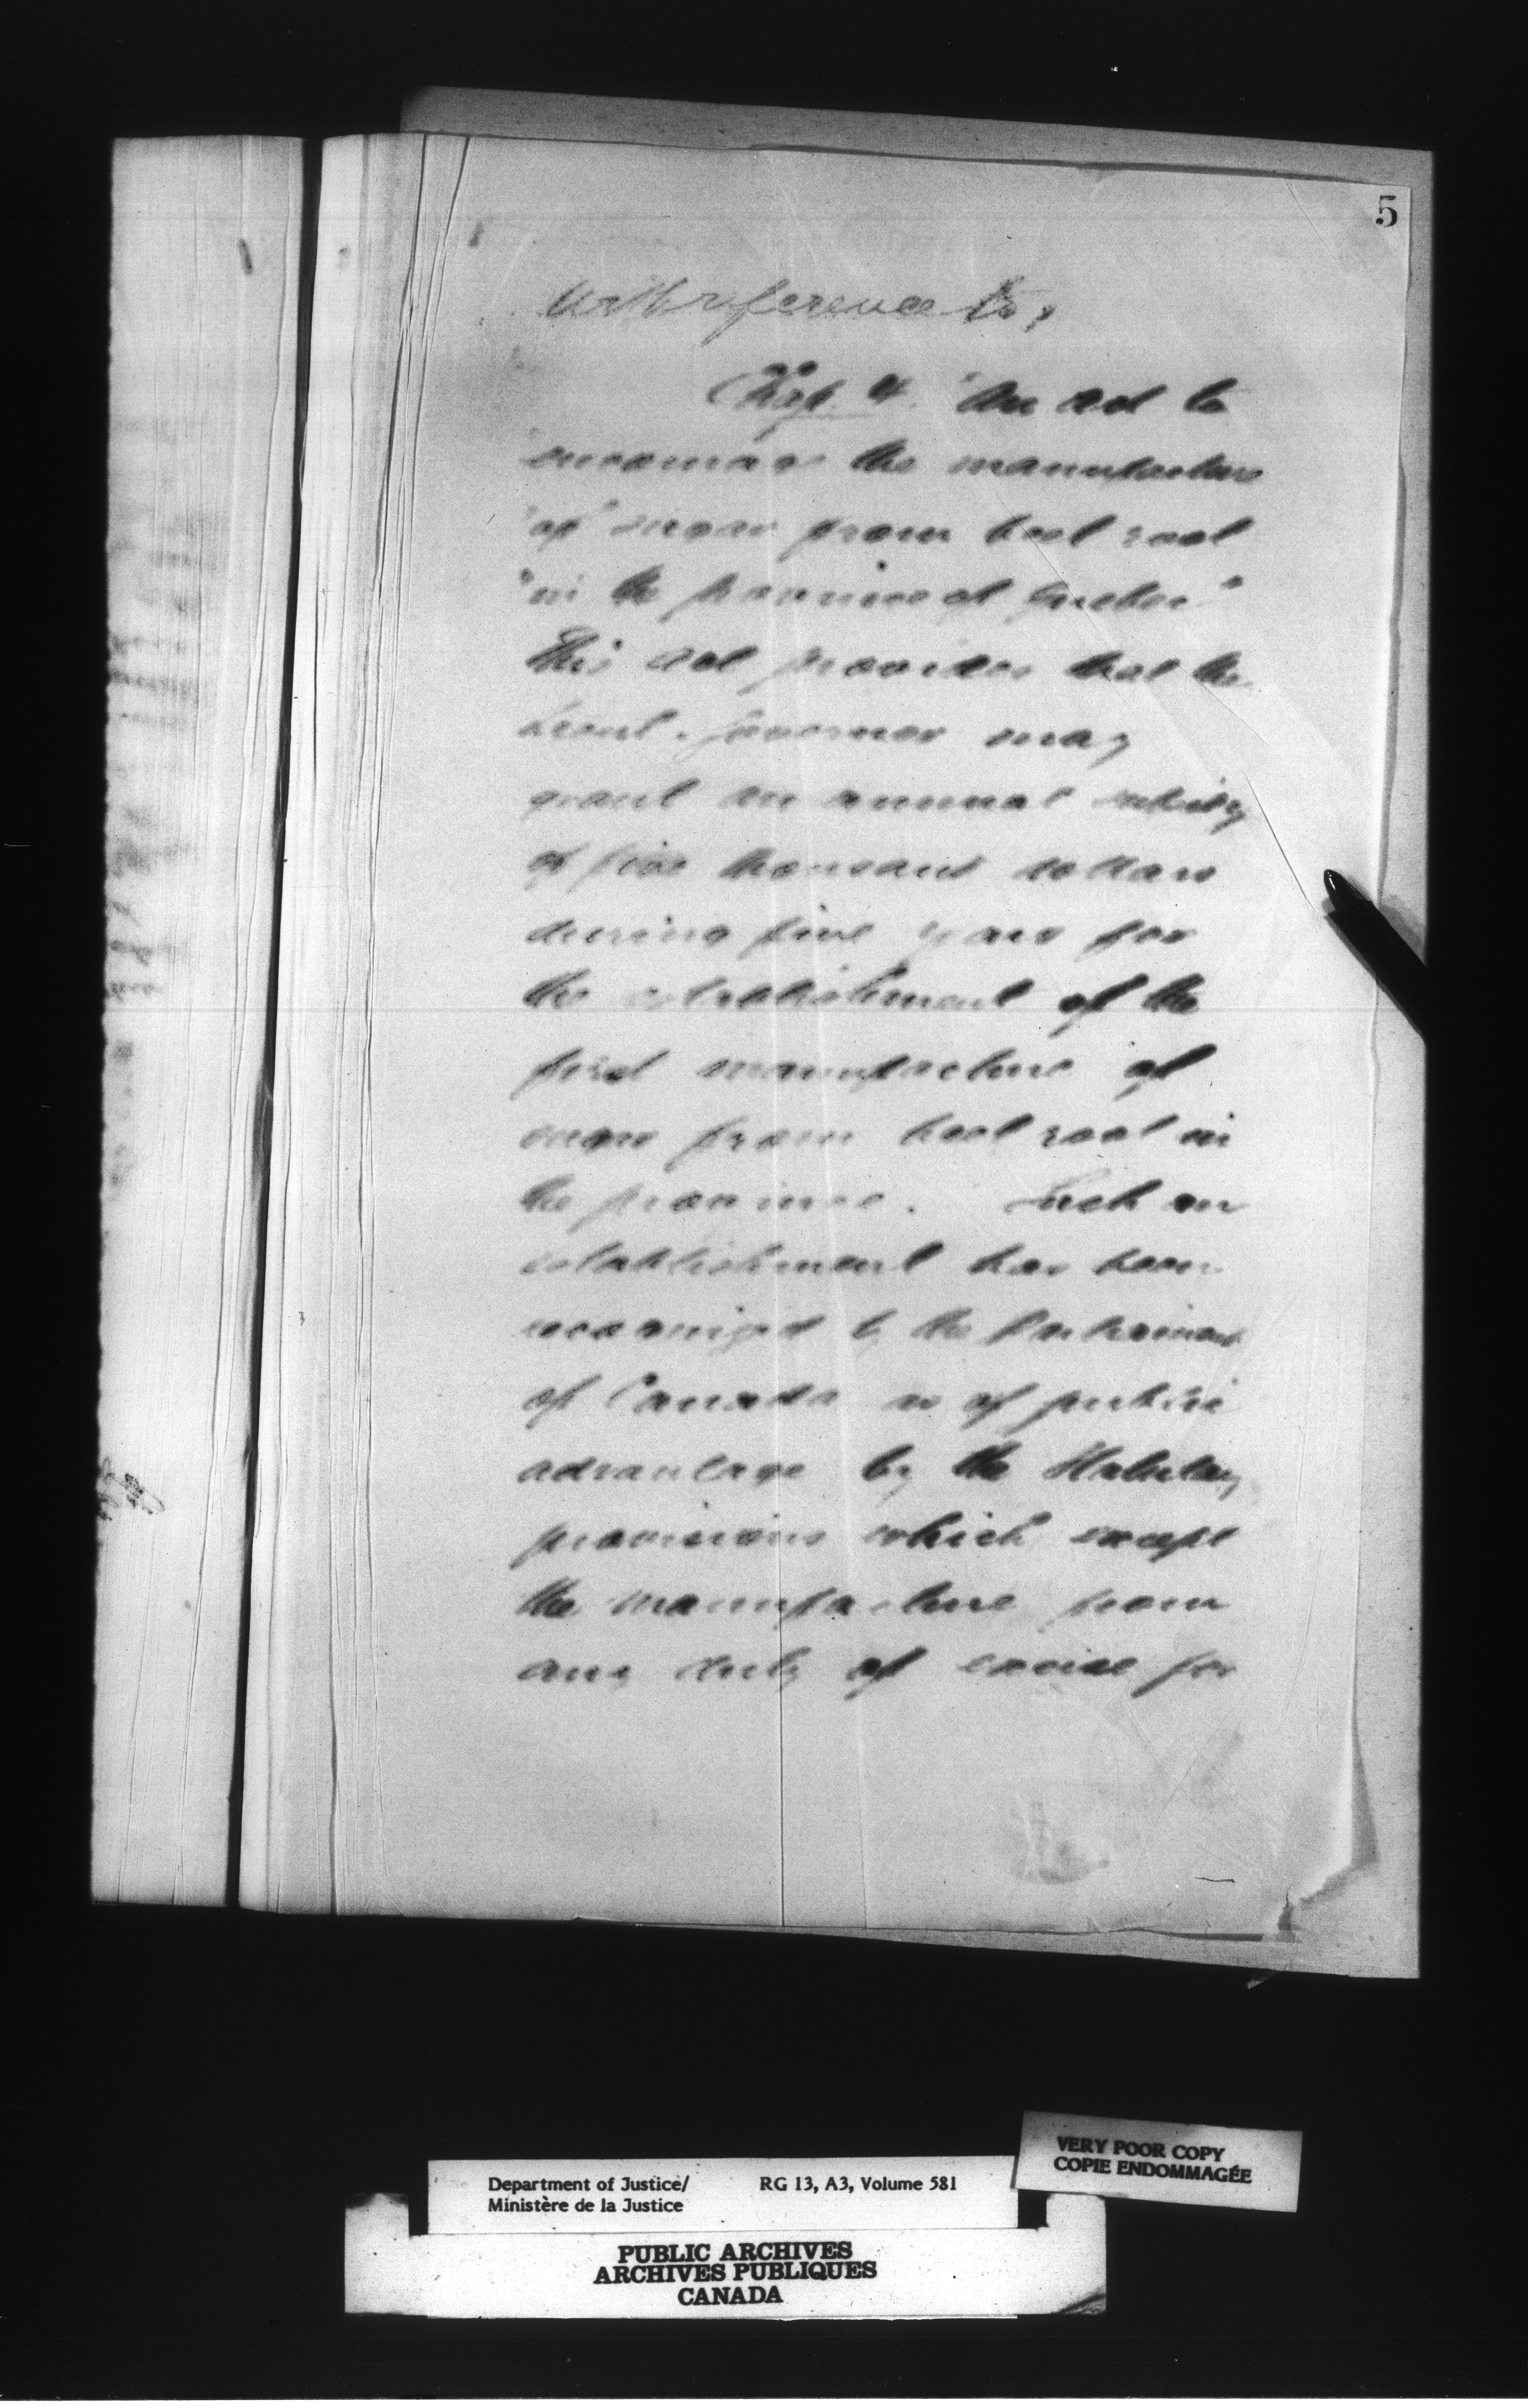 5
With reference to,
Chap. 4. "An Act to
"encourage the manufacture
"of sugar from beet root
"in the province of Quebec"
This Act provides that the
Lieut. Governor may
grant an annual subsidy
of five thousand dollars
during five years for
the establishment of the
first manufacture of
sugar from beet root in
the province. Such an
establishment has been
recognized by the Parliament
of Canada as of public
advantage by the Statutory
provisions which except
the manufacture from
any duty of excise for
VERY POOR COPY
COPIE ENDOMMAGÉE
Department of Justice/ RG 13, A3, Volume 581
Ministère de la Justice
PUBLIC ARCHIVES
ARCHIVES PUBLIQUES
CANADA